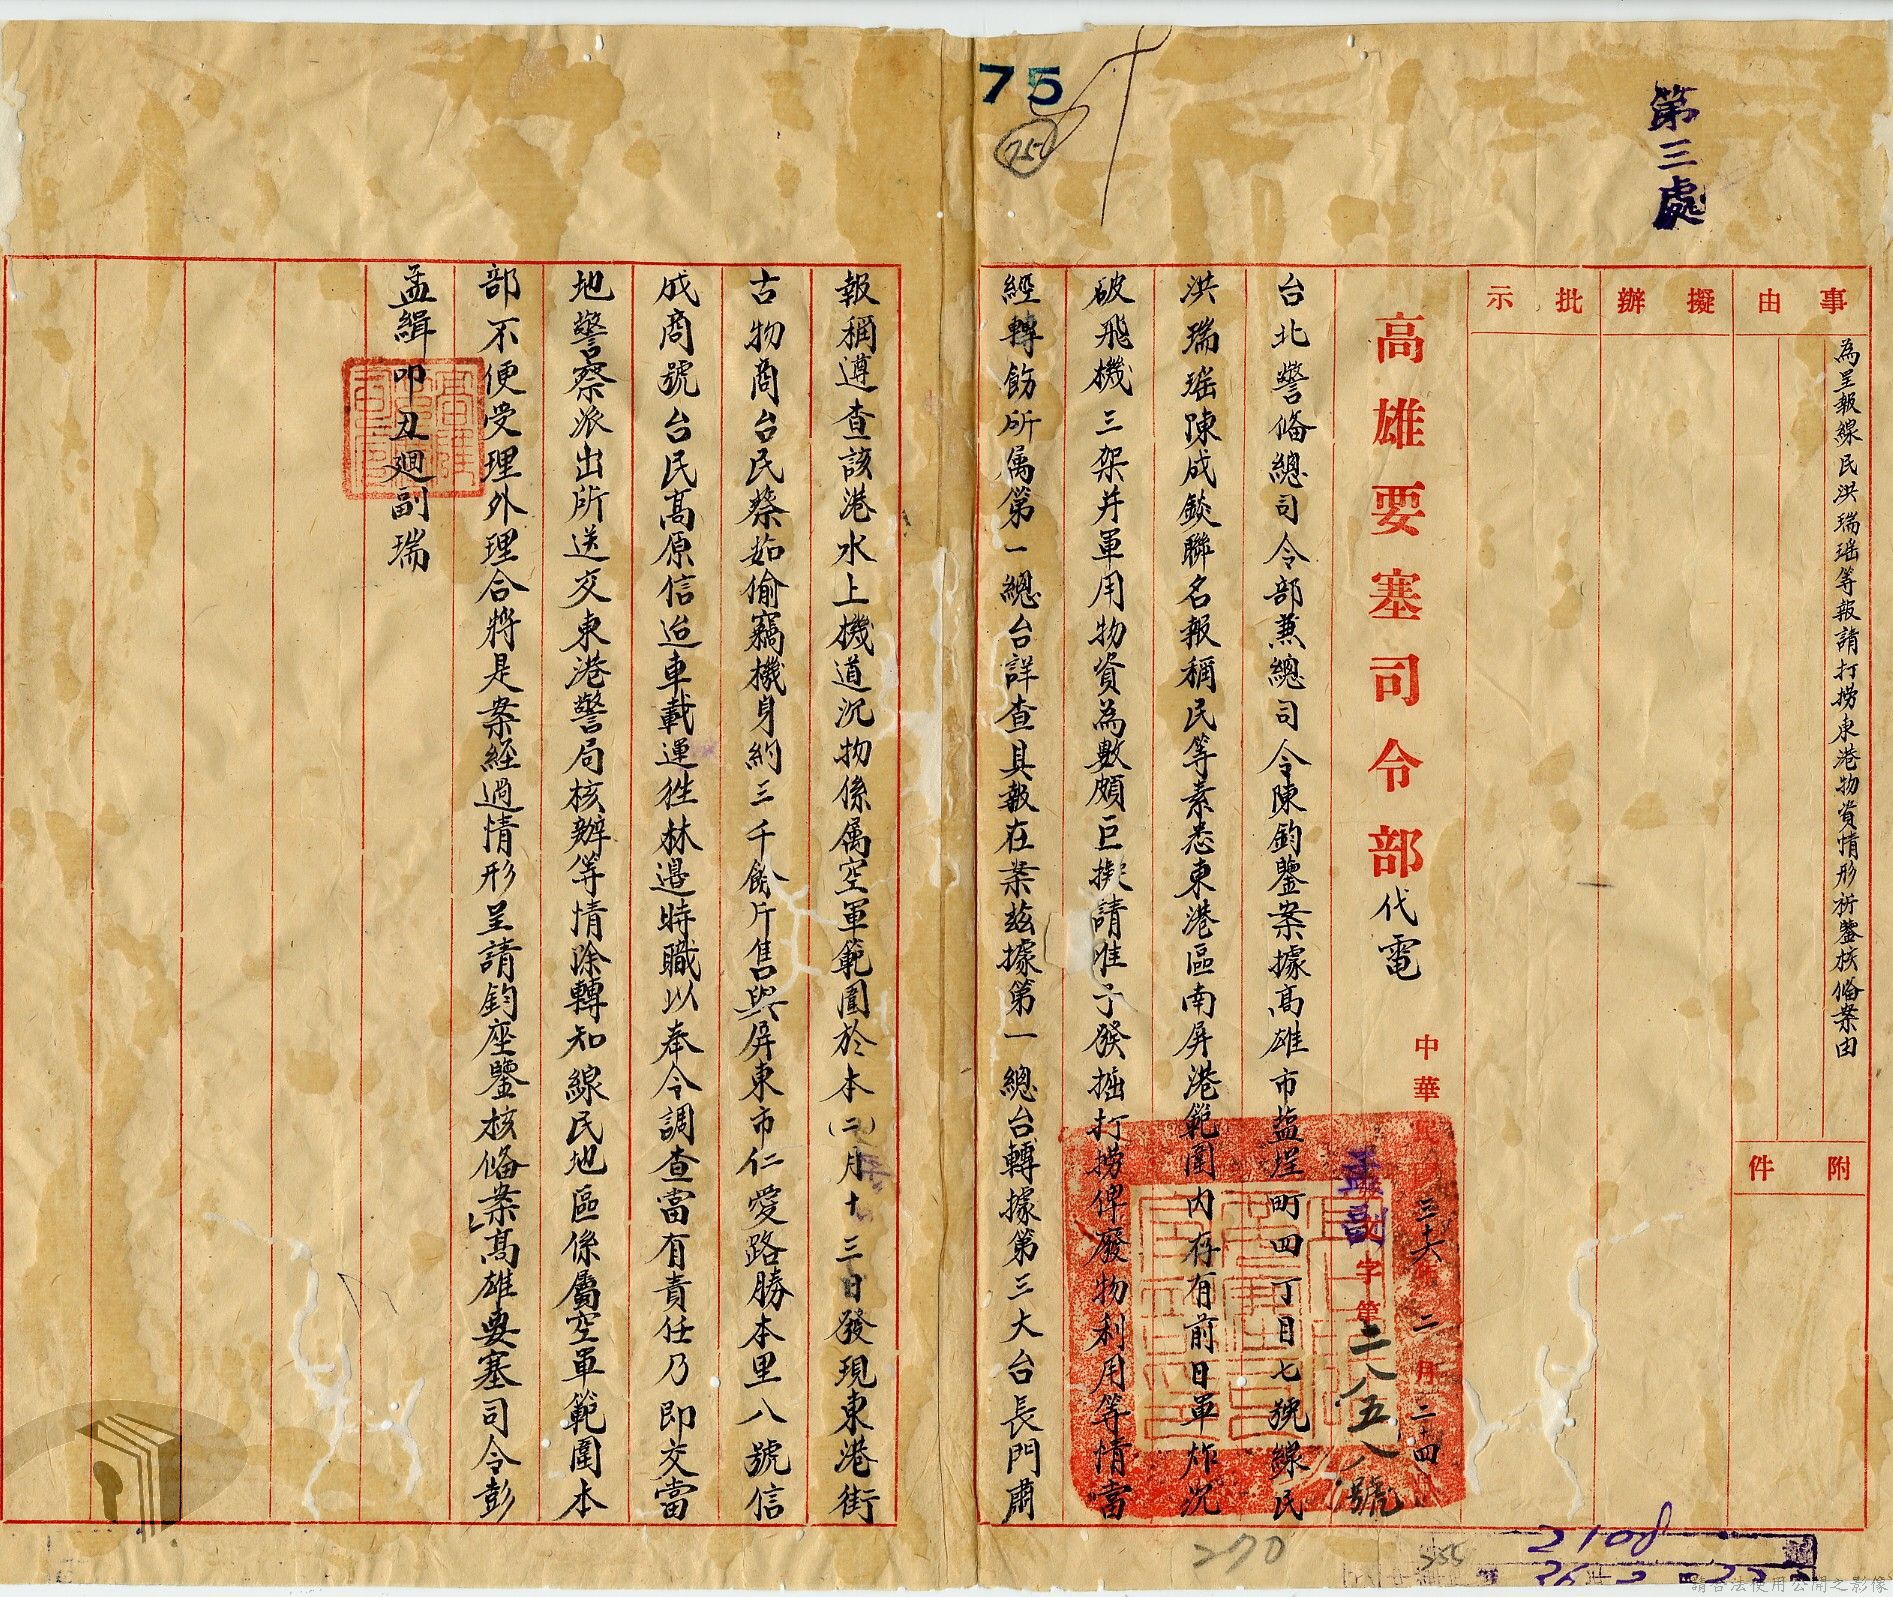 第三處
75
750
事由
擬辦
批示
附件
為呈報線民洪瑞瑤等報請打撈東港物資情形祈鑒核備案由
高雄要塞司令部代電
中華民國三十六年二月二十四
孟副字第二八五八號
台北警備總司令部兼總司令陳鈞鑒案據高雄市盐埕町四丁目七號線民
洪瑞瑤陳成錟聯名報稱民等素悉東港區南屏港範圍內存有前日軍炸沉
破飛機三架并軍用物資為數頗巨擬請准予發掘打撈俾廢物利用等情當
經轉飭所屬第一總台詳查具報在案茲據第一總台轉據第三大台長門肅
報稱遵查該港水上機道沉物係屬空軍範圍於本(二)月十三日發現東港街
古物商台民蔡茹偷竊機身約三千餘斤售與屏東市仁愛路勝本里八號信
成商號台民高原信迨車載運往林邊時職以奉令調查當有責任乃即交當
地警察派出所送交東港警局核辦等情除轉知線民地區係屬空軍範圍本
部不便受理外理合將是案経過情形呈請鈞座鑒核備案高雄要塞司令彭
孟緝叩丑廻副瑞
270
255
2108
請合法使用公開之影像